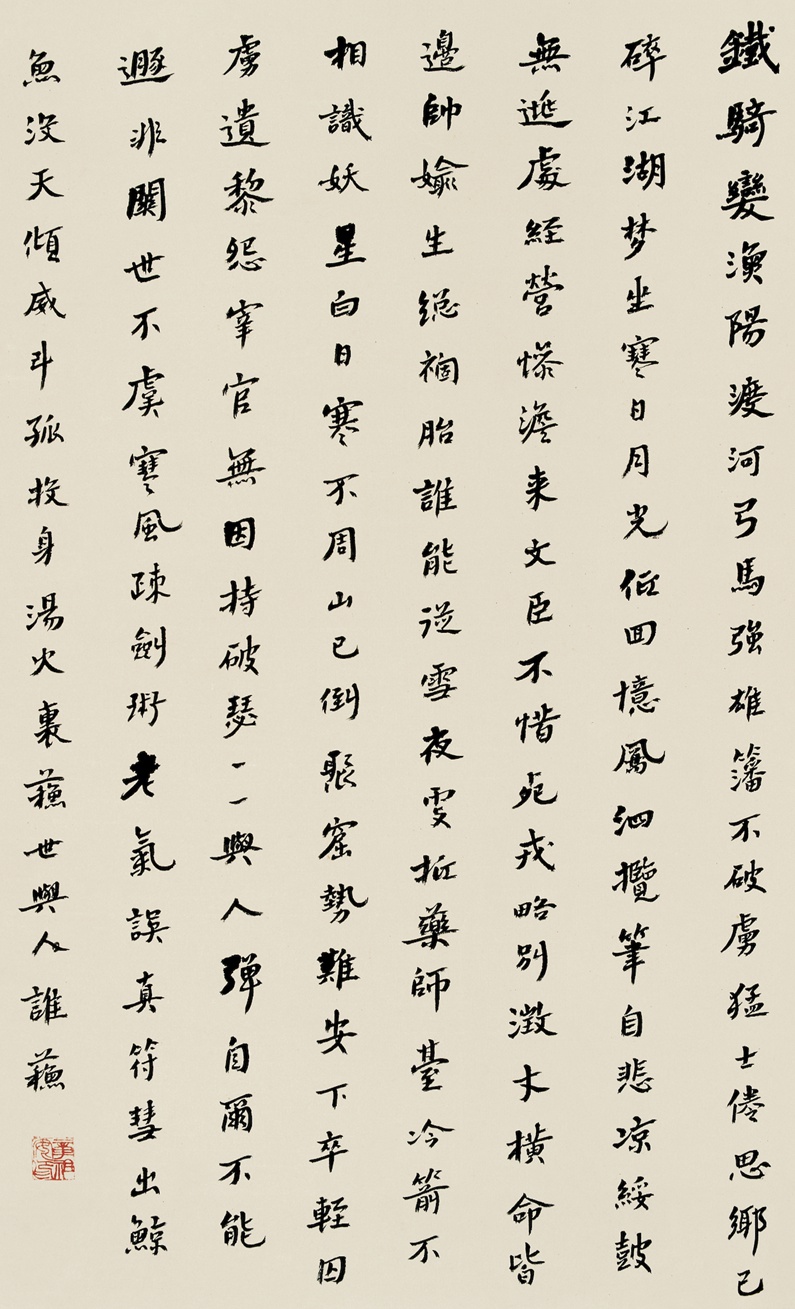 鐵騎變漁陽渡河弓馬強雄籓不破虜猛士倦思鄉已
碎江湖梦坐寒日月光低回憶鳳泗攬筆自悲凉綏皷
無遞處經營慘澹来文臣不惜死戎略别徵才橫命皆
邊帥媮生總禍胎誰能從雪夜更折藥師臺冷箭不
相識妖星白日寒不周山已倒聚窟勢難安下卒輕囚
虜遺黎怨宰官無因持破瑟一一與人彈自爾不能
遯非關世不虞寒風疎劍術老氣誤真符彗出鯨
魚没天傾威斗孤投身湯火裏蘓世與人誰蘓